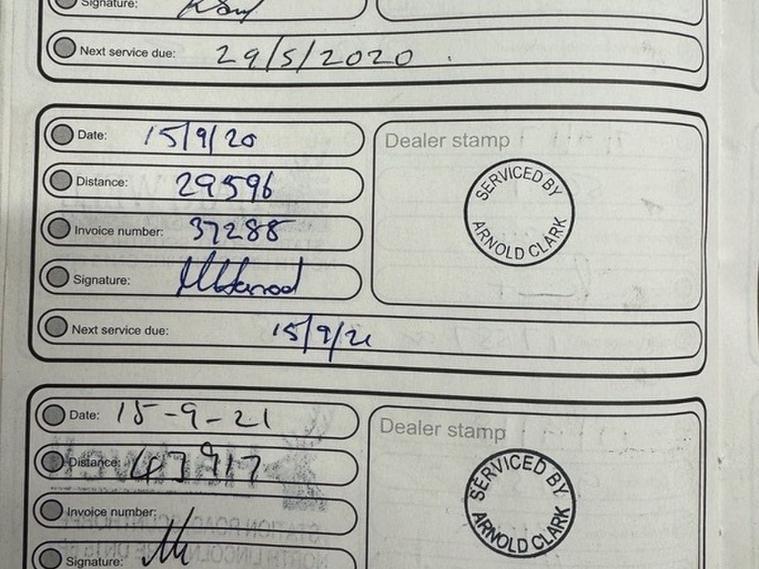 Signature:
Next service due: 29/5/2020
Date: 15/9/20
Dealer stamp
SERVICED BY
ARNOLD CLARK
Distance: 29596
Invoice number: 37288
Signature:
Next service due: 15/9/21
Date: 15-9-21
Dealer stamp
SERVICED BY
ARNOLD CLARK
Distance: 43917
Invoice number:
Signature: